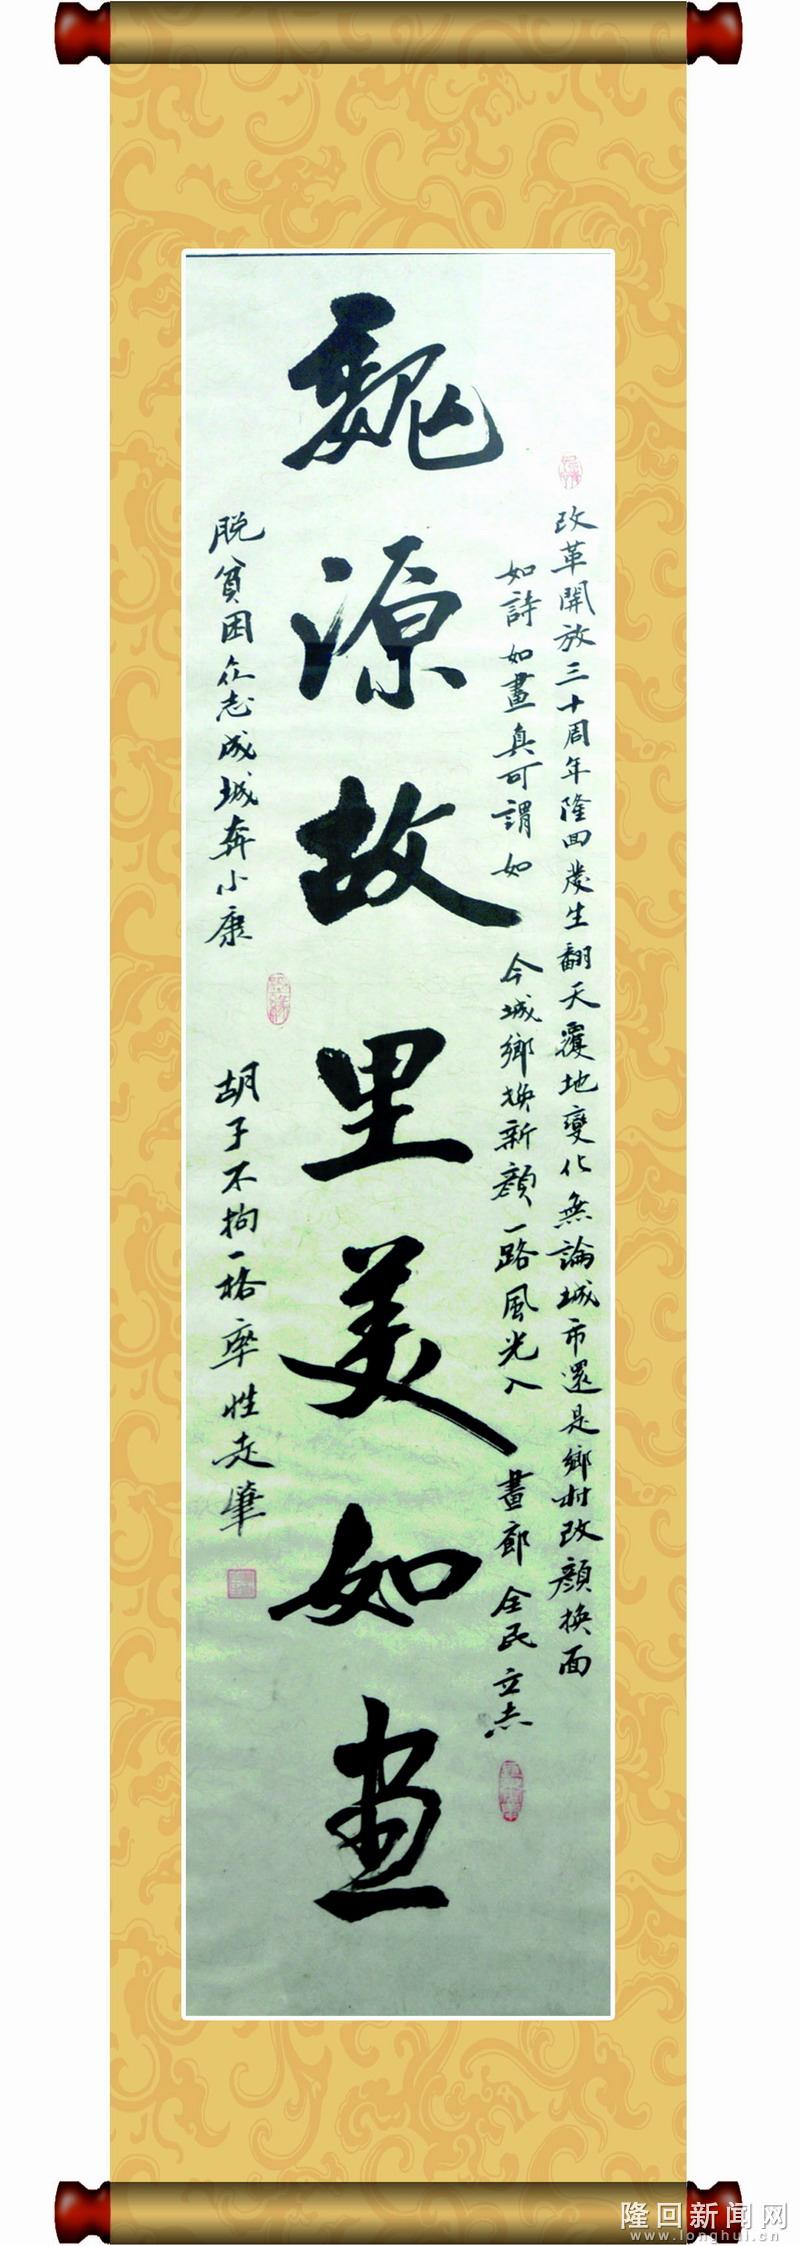 改革開放三十周年隆回發生翻天覆地變化無論城市還是鄉村改顏換面
如詩如畫真可謂如今城鄉换新顏一路風光入畫廊全民立志
魏源故里美如畫
脱貧困众志成城奔小康
胡子不拘一格率性走筆
隆回新闻网
www.longhui.cn